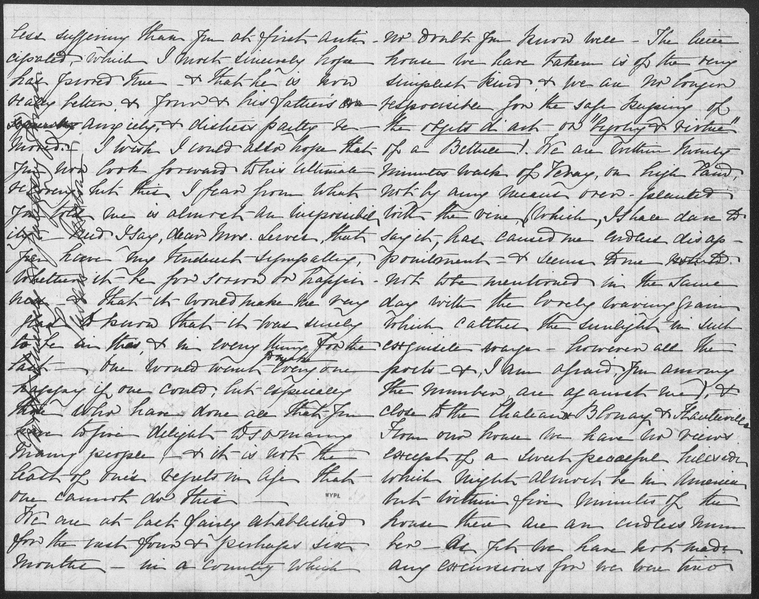 less suffering than you at first anti-
cipated, which I most sincerely hope
has proved true & that he is now
really better, & your & his father's
anxiety, & distress partly re-
moved. I wish I could also hope that
you now look forward to his ultimate
recovery but this I fear from what
you told me is almost an impossibil
ity. Need I say, dear Mrs. Lewes, that
you have my tenderest sympathy,
whether it be for sorrow or happi-
ness & that it would make me very
glad to know that it was surely
to be in this, & in everything for the
last — One would want to make everyone
happy if one could, but especially
those who have done all that you
have to give delight to so many
many people — & it is not the
least of one's regrets in life that
one cannot do this —
We are at last fairly established
for the next four & perhaps six
months — in a country which
NYPL
no doubt you know well — The little
house we have taken is of the very
simplest kind, & we are no longer
responsible for the safe keeping of
the objets d'art or "bigotry & virtue"
of a Bettine! We are within twenty
minutes walk of Vevay, on high land,
not by any means over-planted
with the vine (which, I hace dare to
say it, has caused me endless disap-
pointment — & seems to me
not to be mentioned in the same
day with the lovely waving grain
which catches the sunlight in such
exquisite ways — however all the
poets — & I am afraid you among
the number are against me), &
close to the Chateaux Blonay & Hauteville
From our house we have no views
except of a sweet peaceful hillside
which might almost be in America
but within five minutes of the
house there are an endless num
ber — As yet we have not made
any excursions for we were